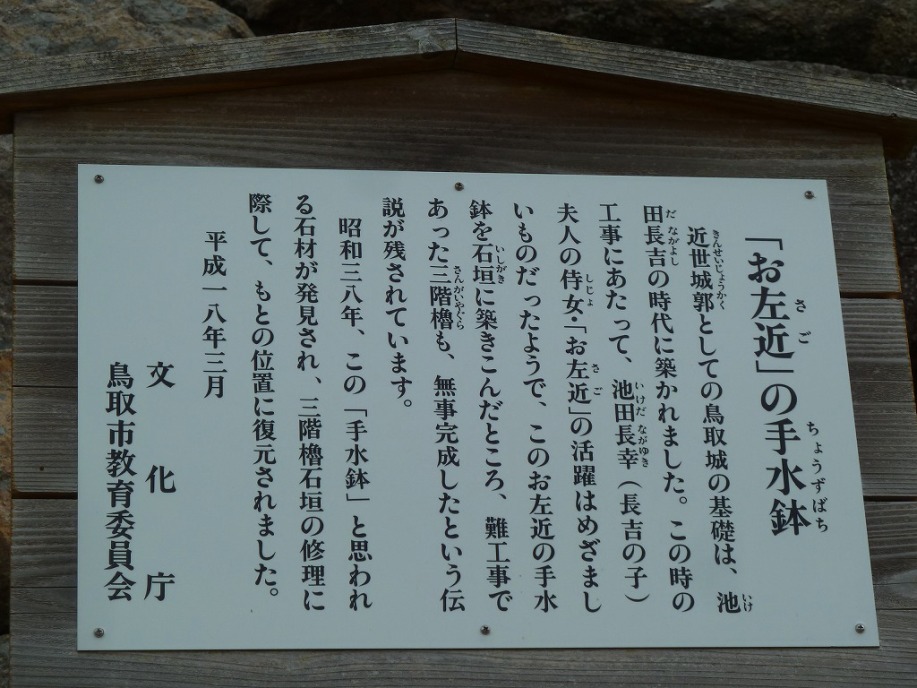 「お左近」の手水鉢
近世城郭としての鳥取城の基礎は、池
田長吉の時代に築かれました。この時の
工事にあたって、池田長幸(長吉の子)
夫人の侍女・「お左近」の活躍はめざまし
いものだったようで、このお左近の手水
鉢を石垣に築きこんだところ、難工事で
あった三階櫓も、無事完成したという伝
説が残されています。
昭和三八年、この「手水鉢」と思われ
る石材が発見され、三階櫓石垣の修理に
際して、もとの位置に復元されました。
平成一八年三月
文化庁
鳥取市教育委員会